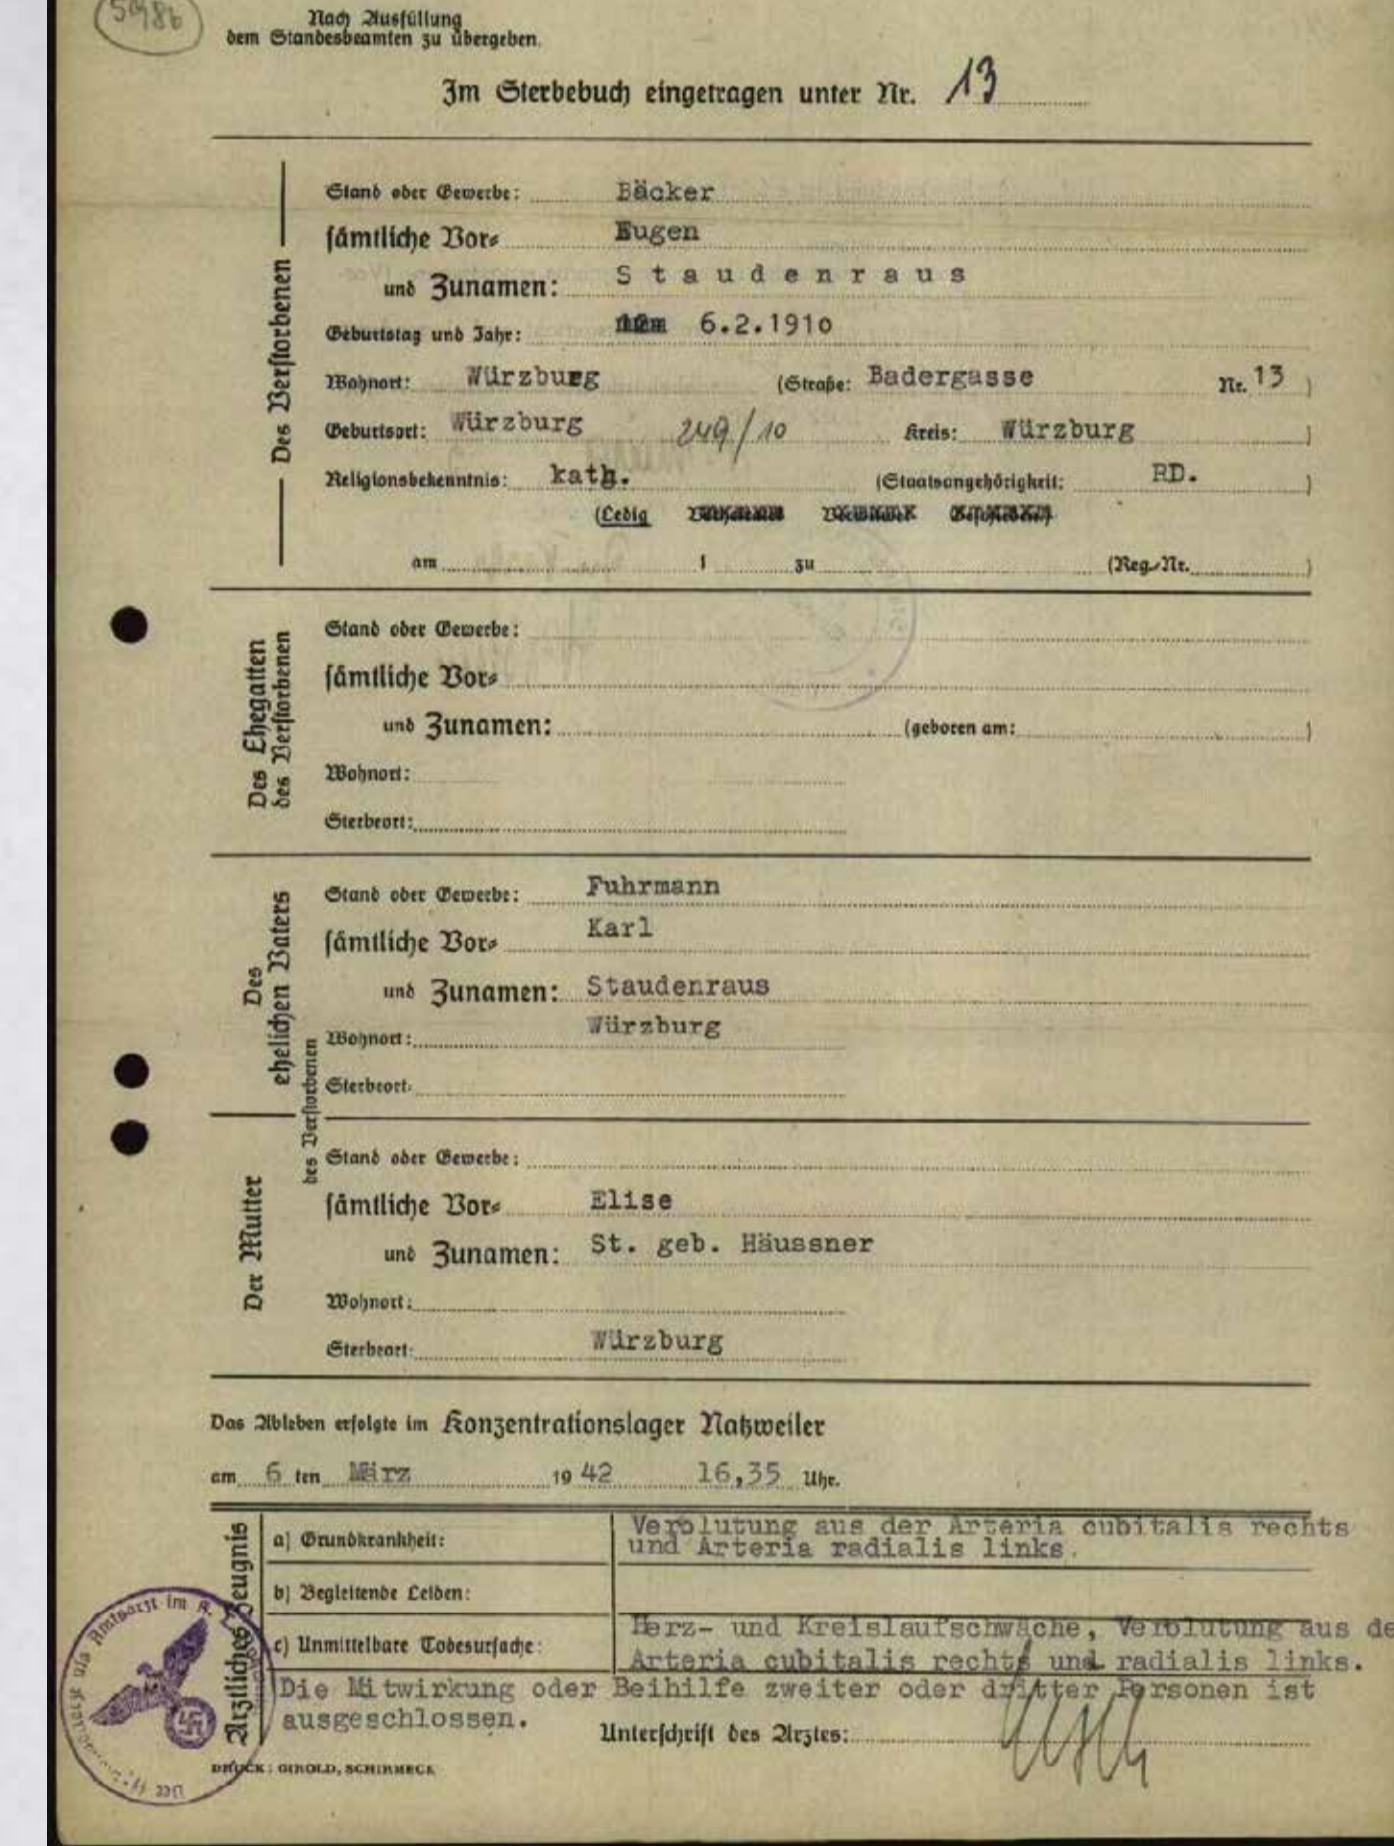 59186
Nach Ausfüllung
dem Standesbeamten zu übergeben.
Im Sterbebuch eingetragen unter Nr. 13
Des Verstorbenen
Stand oder Gewerbe: Bäcker
sämtliche Vor- Eugen
und Zunamen: Staudenraus
Geburtstag und Jahr: 6.2.1910
Wohnort: Würzburg (Straße: Badergasse Nr. 13 )
Geburtsort: Würzburg 249/10 Kreis: Würzburg )
Religionsbekenntnis: kath. (Staatsangehörigkeit: RD. )
(Ledig
am 1 zu (Reg.-Nr. )
Des Ehegatten
des Verstorbenen
Stand oder Gewerbe:
sämtliche Vor-
und Zunamen: (geboren am: )
Wohnort:
Sterbeort:
Des
ehelichen Vaters
des Verstorbenen
Stand oder Gewerbe: Fuhrmann
sämtliche Vor- Karl
und Zunamen: Staudenraus
Wohnort: Würzburg
Sterbeort:
Der Mutter
Stand oder Gewerbe:
sämtliche Vor- Elise
und Zunamen: St. geb. Häussner
Wohnort:
Sterbeort: Würzburg
Das Ableben erfolgte im Konzentrationslager Natzweiler
am 6 ten März 19 42 16,35 Uhr.
Ärztliches Zeugnis
a) Grundkrankheit: Verblutung aus der Arteria cubitalis rechts
und Arteria radialis links.
b) Begleitende Leiden:
c) Unmittelbare Todesursache: Herz- und Kreislaufschwäche, Verblutung aus de
Arteria cubitalis rechts und radialis links.
Die Mitwirkung oder Beihilfe zweiter oder dritter Personen ist
ausgeschlossen.
Unterschrift des Arztes:
als Amtsarzt im K.
DRUCK: GIROLD, SCHIRMECK